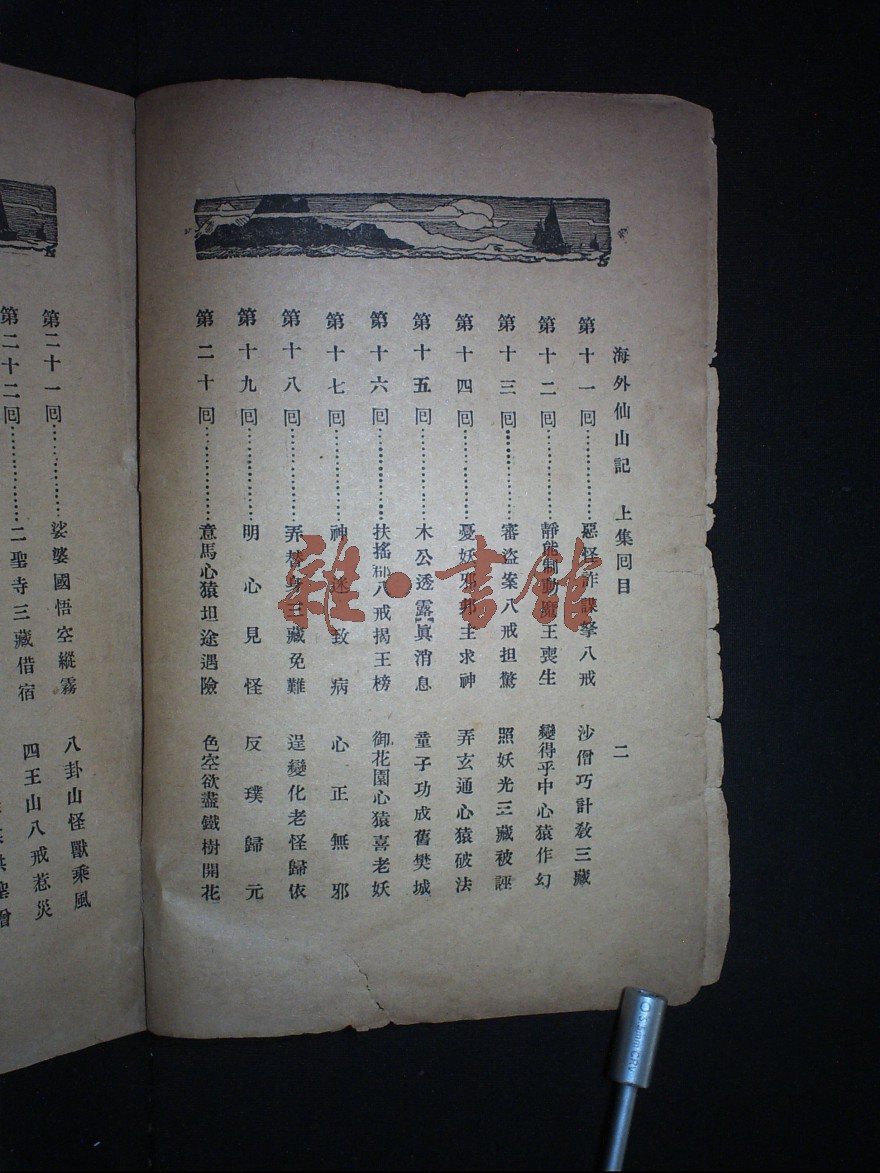 海外仙山記　上集回目　二
第十一回…………惡怪詐謀拏八戒　沙僧巧計救三藏
第十二回…………靜能制動魔王喪生　變得乎中心猿作幻
第十三回…………審盜案八戒担驚　照妖光三藏被誣
第十四回…………憂妖邪邦主求神　弄玄通心猿破法
第十五回…………木公透露眞消息　童子功成舊樊城
第十六回…………扶搖術八戒揭王榜　御花園心猿喜老妖
第十七回…………神迷致病　心正無邪
第十八回…………弄替身三藏免難　逞變化老怪歸依
第十九回…………明心見怪　反璞歸元
第二十回…………意馬心猿坦途遇險　色空欲盡鐵樹開花
第二十一回…………娑婆國悟空縱霧　八卦山怪獸乘風
第二十二回…………二聖寺三藏借宿　四王山八戒惹災
聖僧
雜·書館